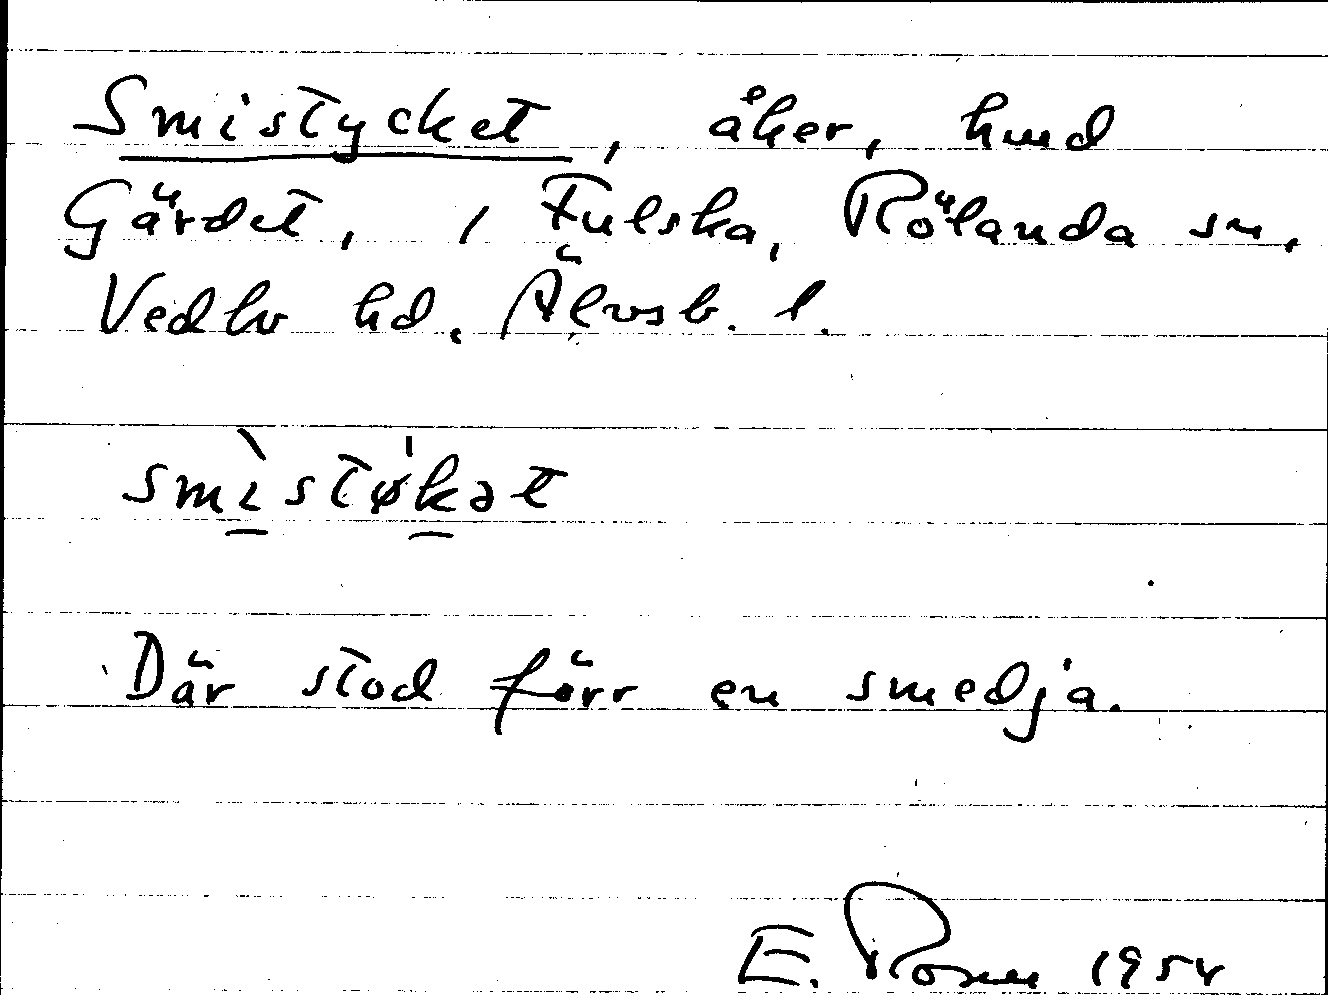 Smistycket, åker, hmd
Gärdet, i Fulska, Rölanda sn,
Vedbo hd. Älvsb. l.
smìstø̍kət
Där stod förr en smedja.
E. Rosén 1954